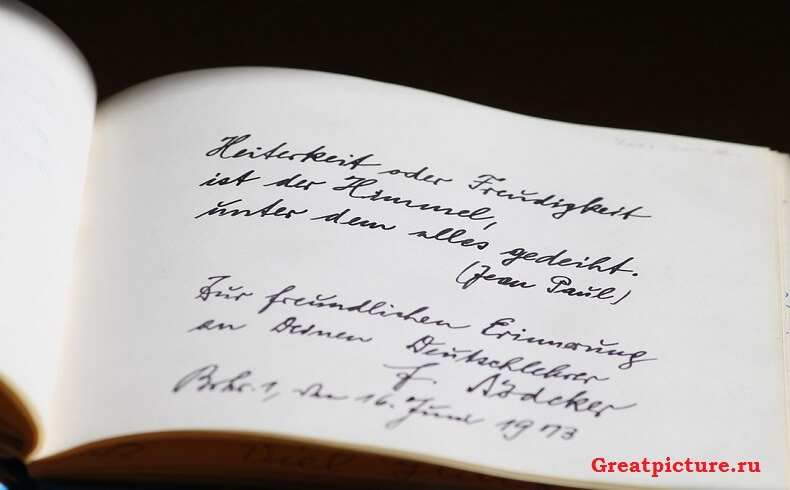 Heiterkeit oder Freudigkeit
ist der Himmel,
unter dem alles gedeiht.
(Jean Paul)
Zur freundlichen Erinnerung
an Deinen Deutschlehrer
F.
den 16. Juni 1973
Greatpicture.ru